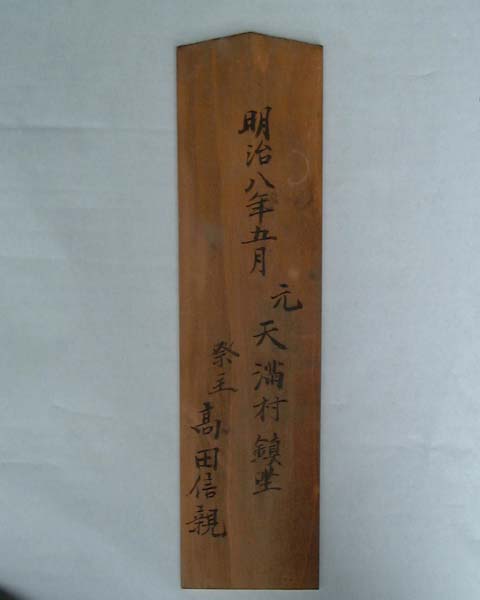 明治八年五月
元天満村鎮坐
祭主高田信親